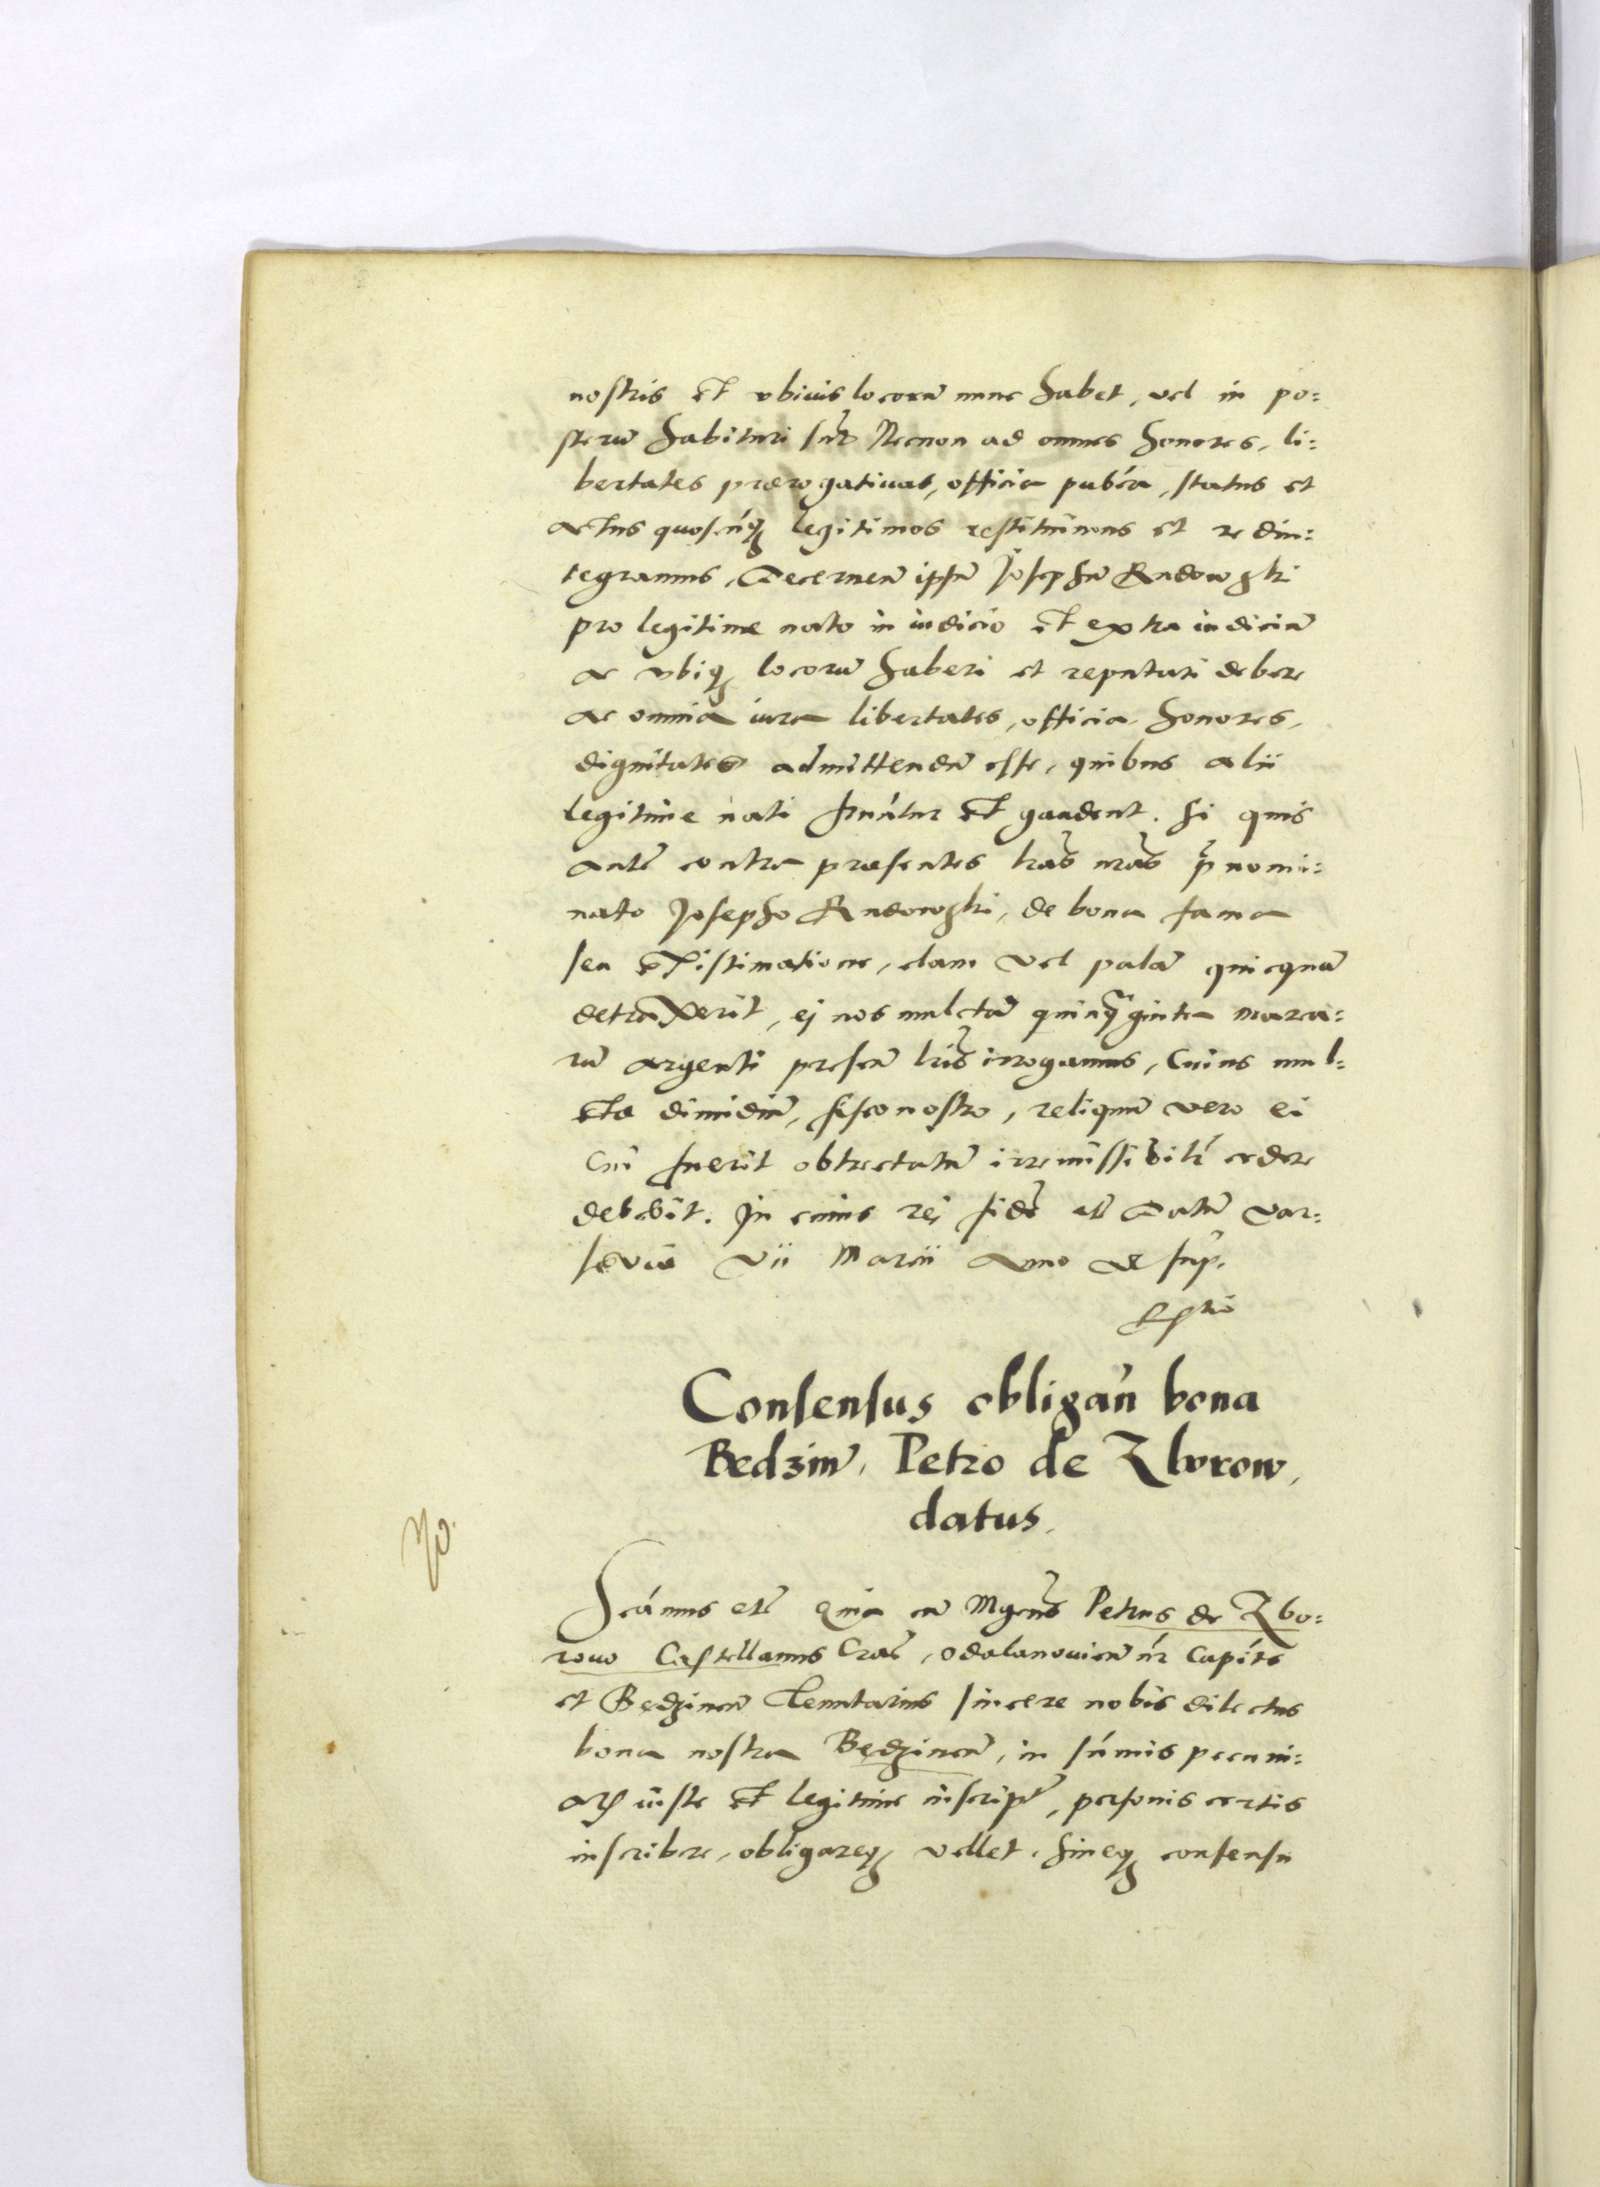 nostris et vbiuis locorũ nunc habet, vel in po:
sterũ habituri sũt Necnon ad omnes honores, li:
bertates prærogatiuas, officia pubca, status et
actus quoscũqȝ legitimos restituimus et redin:
tegramus, Decernen ipsũ Josephũ Rudowski
pro legitime nato in iudicio et extra iudiciũ
ac vbiqȝ locorũ haberi et reputari debere
ac omnia iura libertates, officia honores,
dignitates admittendũ esse, quibus alii
legitime nati fruũtur et gaudent. Si quis
autẽ contra præsentes lras nras p̃nomi:
nato Josepho Rudowski, de bona fama
seu existimatione, clam vel palã quicquã
detraxerit, ej nos mulctã quinq̃ginta marca:
rũ argenti presen lris irrogamus, Cuius mul:
ctæ dimidiũ, fisco nostro, reliquũ vero ei
cui fuerit obtrectatũ irremissibilr cedere
debebit. In cuius rej fidẽ etc̃ Datũ Var:
sevie vii Marcii Anno vt sup.

Consensus obligan bona
Bedzin, Petro de Zborow,
datus.
Scamus etc̃ Quia cũ Mgcus Petrus de Zbo:
rouo Castellanus Crac̃, Odalanouicen nr Capite
et Będzinen Tenutarius sincere nobis dilectus
bona nostra Będzinen, in sũmis pecuni:
arȝ iuste et legitime inscript, personis certis
inscribere, obligareqȝ vellet. Sineqȝ consensu